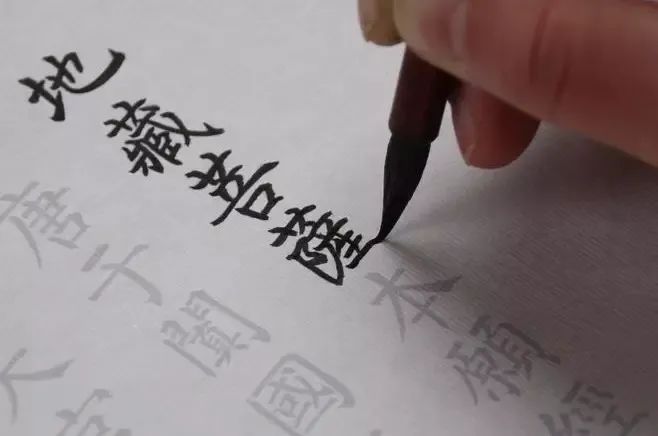 地藏菩薩本願經
唐于闐國